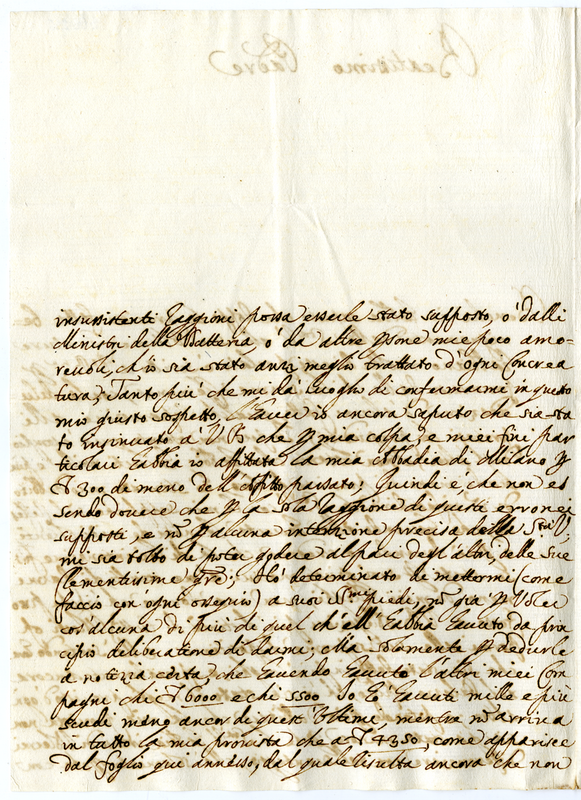 insussistenti raggioni possa esserle stato supposto, ò dalli
Ministri della Datteria, ò da altre Psone mie poco amo-
reuoli, ch'io sia stato anzi meglio trattato d'ogni Concrea
tura; Tanto più che mi dà luogho di confermarmi in questo
mio giusto sospetto, l'hauer io ancora saputo che sia sta
to insinuato à V. B. che p mia colpa, e miei fini par
ticolari habbia io affittata la mia Abbadia di Milano p
300 di meno dell' affitto passato; Quindi è, che non es
sendo douere che p la sola raggione di questi erronei
supposti, e nõ p alcuna intenzione precisa della
mi sia tolto di poter godere al pari degl'altri delle sue
Clementissime gre; Hò determinato di mettermi (come
faccio con ogni ossequio) a suoi SSmi piedi, nõ già p voler
cos'alcuna di più di quel ch'ell' habbia hauuto da prin
cipio deliberatione di darmi; Ma solamente p dedurle
a notizia certa, che hauendo hauuto l'altri miei Com
pagni chi 6000 e chi 5500 Io hò hauuti mille e più
scudi meno ancor di quest'Vltimi, mentre nõ arriua
in tutto la mia prouista che a 4350, come apparisce
dal foglio qui annesso, dal quale risulta ancora che non
Beatissimo Padre